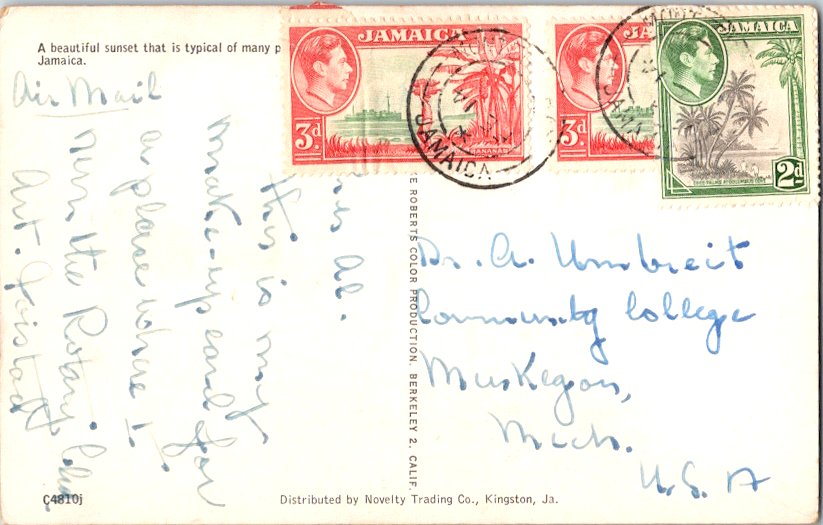 A beautiful sunset that is typical of many p
Jamaica.
JAMAICA
3d
BANANAS
JAMAICA
3d
JAMAICA
2d
JAMAICA
Air Mail
Al.
This is my
make-up card for
a place where I
run the Rotary
Art.
E ROBERTS COLOR PRODUCTION. BERKELEY 2, CALIF.
Dr. A. Umbreit
Community College
Muskegon,
Mich.
U.S.A
C4810j
Distributed by Novelty Trading Co., Kingston, Ja.